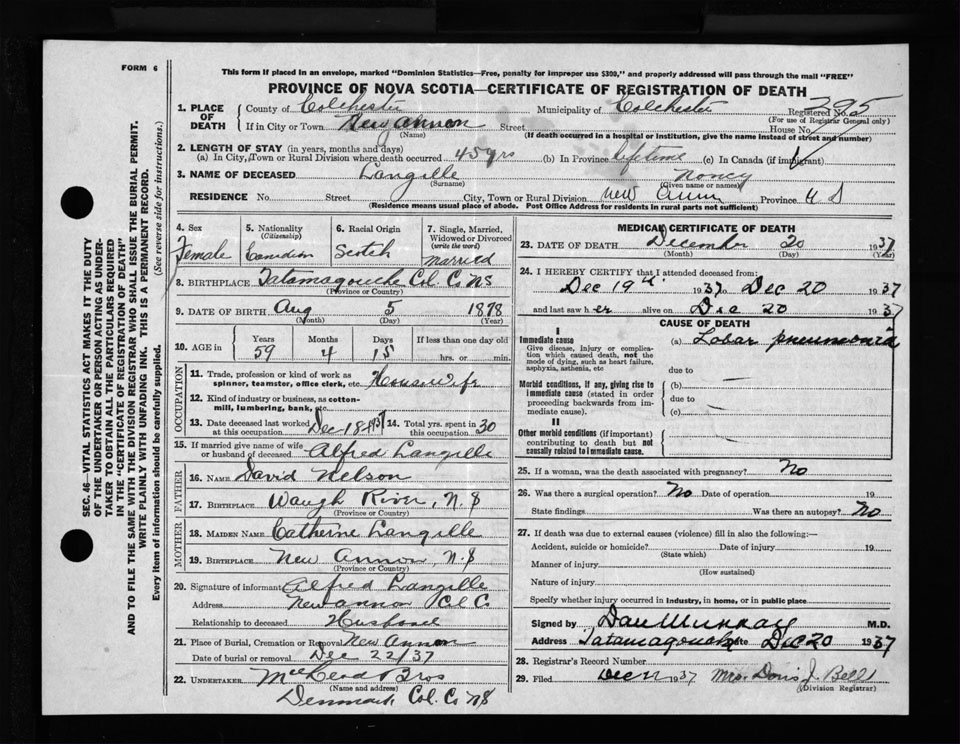 FORM 6
This form if placed in an envelope, marked "Dominion Statistics—Free, penalty for improper use $300," and properly addressed will pass through the mail "FREE"
PROVINCE OF NOVA SCOTIA—CERTIFICATE OF REGISTRATION OF DEATH
1. PLACE OF DEATH County of Colchester Municipality of Colchester Registered No. 395
(For use of Registrar General only)
If in City or Town New Annon Street House No.
(Name) (If death occurred in a hospital or institution, give the name instead of street and number)
2. LENGTH OF STAY (in years, months and days)
(a) In City, Town or Rural Division where death occurred 45 yrs (b) In Province lifetime (c) In Canada (if immigrant)
3. NAME OF DECEASED Langille Noncy
(Surname) (Given name or names)
RESIDENCE No. Street City, Town or Rural Division New Annon Province N S
(Residence means usual place of abode. Post Office Address for residents in rural parts not sufficient)
4. Sex Female
5. Nationality (Citizenship) Canadian
6. Racial Origin Scotch
7. Single, Married, Widowed or Divorced (write the word) Married
8. BIRTHPLACE Tatamagouche Col. Co NS
(Province or Country)
9. DATE OF BIRTH Aug 5 1878
(Month) (Day) (Year)
10. AGE in Years Months Days If less than one day old
59 4 15 hrs. or min.
OCCUPATION
11. Trade, profession or kind of work as spinner, teamster, office clerk, etc. Housewife
12. Kind of industry or business, as cotton-mill, lumbering, bank, etc.
13. Date deceased last worked at this occupation Dec 18th 37 14. Total yrs. spent in this occupation 30
15. If married give name of wife or husband of deceased Alfred Langille
FATHER
16. NAME David Nelson
17. BIRTHPLACE Waugh River, N.S
(Province or Country)
MOTHER
18. MAIDEN NAME Catherine Langille
19. BIRTHPLACE New Annon, N.S
(Province or Country)
20. Signature of informant Alfred Langille
Address New annon Col Co
Relationship to deceased Husband
21. Place of Burial, Cremation or Removal New Annon
Date of burial or removal Dec 22/37
22. UNDERTAKER McLeod Bros
(Name and address)
Denmark Col. Co NS
MEDICAL CERTIFICATE OF DEATH
23. DATE OF DEATH December 20 1937
(Month) (Day) (Year)
24. I HEREBY CERTIFY that I attended deceased from:
Dec 19th 1937 Dec 20 1937
and last saw her alive on Dec 20 1937
CAUSE OF DEATH
I
Immediate cause (a) Lobar pneumonia
Give disease, injury or complication which caused death, not the mode of dying, such as heart failure, asphyxia, asthenia, etc
due to
Morbid conditions, if any, giving rise to immediate cause (stated in order proceeding backwards from immediate cause).
(b)
due to
(c)
II
Other morbid conditions (if important) contributing to death but not causally related to immediate cause.
25. If a woman, was the death associated with pregnancy? No
26. Was there a surgical operation? No Date of operation 19
State findings Was there an autopsy? No
27. If death was due to external causes (violence) fill in also the following:—
Accident, suicide or homicide? Date of injury 19
(State which)
Manner of injury
(How sustained)
Nature of injury
Specify whether injury occurred in industry, in home, or in public place
Signed by Dan Murray M.D.
Address Tatamagouche Date Dec 20 1937
28. Registrar's Record Number
29. Filed Dec 1937 Mrs. Doris J. Bell
(Division Registrar)
SEC. 46—VITAL STATISTICS ACT MAKES IT THE DUTY
OF THE UNDERTAKER OR PERSON ACTING AS UNDER-
TAKER TO OBTAIN ALL THE PARTICULARS REQUIRED
IN THE "CERTIFICATE OF REGISTRATION OF DEATH"
AND TO FILE THE SAME WITH THE DIVISION REGISTRAR WHO SHALL ISSUE THE BURIAL PERMIT.
WRITE PLAINLY WITH UNFADING INK. THIS IS A PERMANENT RECORD.
Every item of information should be carefully supplied. (See reverse side for instructions.)